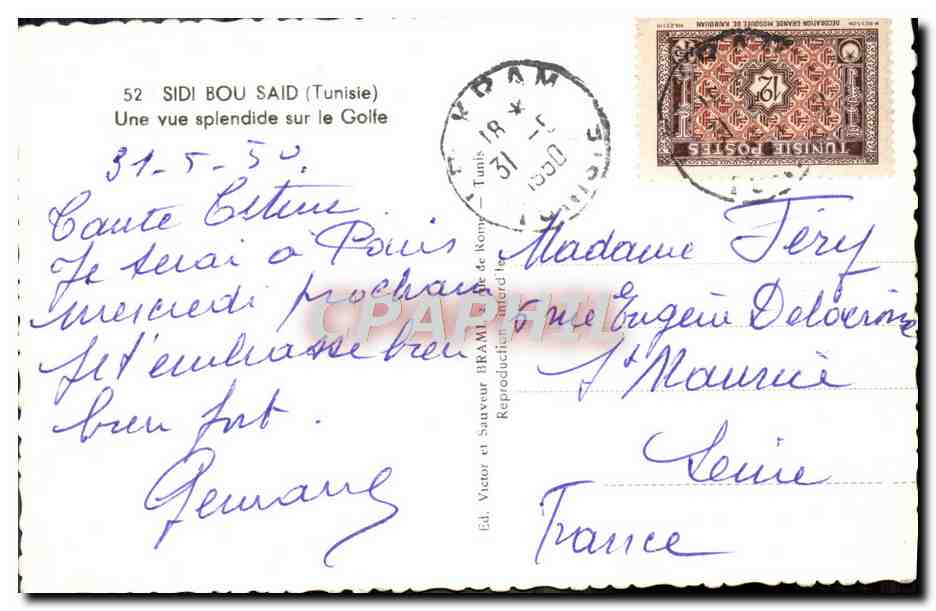 52 SIDI BOU SAID (Tunisie)
Une vue splendide sur le Golfe
31-5-50
Tante
Je serai à Paris
mercredi prochain
Je t'embrasse bien
bien fort.
Ed. Victor et Sauveur BRAMI, de Rome - Tunis
Reproduction interdite
KRAM
18
31 -5
1950
TUNISIE POSTES
12
DÉCORATION GRANDE MOSQUÉE DE KAIROUAN
CPARPHIL
Madame Féry
6 rue Eugène Delacroix
St Maurice
Seine
France